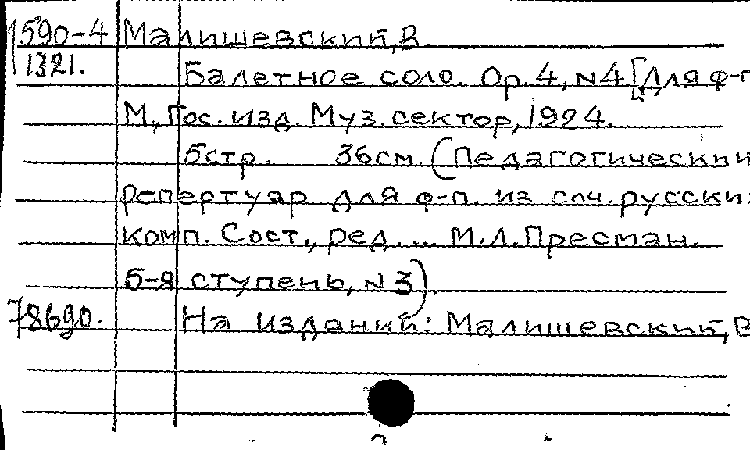 1590-4 Малишевский, В
1321. Балетное соло. Op. 4, N4 [Для ф-п
М., Гос. изд. Муз. сектор, 1924.
5стр. 36см. (Педагогический
репертуар для ф-п. из соч. русски
комп. Сост., ред.... М.Л. Пресман.
5-я ступень, N 3).
78690. На издании: Малишевский, В